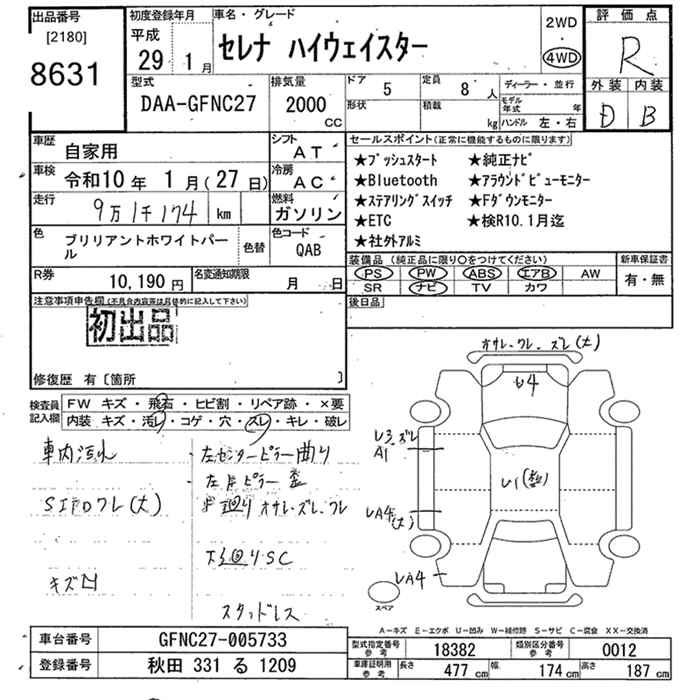 出品番号
[2180]
8631
初度登録年月
平成
29 1月
車名・グレード
セレナ ハイウェイスター
2WD
4WD
評価点
R
外装 内装
D B
型式
DAA-GFNC27
排気量
2000
CC
ドア
5
定員
8 人
形状
積載
kg
ディーラー・並行
モデル年式 年
ハンドル 左・右
車歴
自家用
シフト
AT
車検
令和10年 1月(27日)
冷房
AC
走行
9万1千174 km
燃料
ガソリン
色
ブリリアントホワイトパール
色替
色コード
QAB
R券
10,190円
名変通知期限
月 日
セールスポイント(正常に機能するものに限ります)
★プッシュスタート ★純正ナビ
★Bluetooth ★アラウンドビューモニター
★ステアリングスイッチ ★Fダウンモニター
★ETC ★検R10.1月迄
★社外アルミ
装備品(純正品に限り○をつけてください)
PS PW ABS エアB AW
SR ナビ TV カワ
新車保証書
有・無
後日品
注意事項申告欄(不具合内容等は具体的に記入して下さい)
初出品
修復歴 有〔箇所 〕
検査員記入欄
FW キズ・飛石・ヒビ割・リペア跡・×要
内装 キズ・汚レ・コゲ・穴・スレ・キレ・破レ
車内汚れ
キズ凹
・左センターピラー曲り
・左
廻りオサレ・ズレ、ワレ
廻りSC
スタッドレス
オサレ・ワレ、ズレ(大)
W4
レヨズレ
A1
U1
UA4(大)
UA4
スペア
A－キズ E－エクボ U－凹み W－補修跡 S－サビ C－腐食 XX－交換済
車台番号
GFNC27-005733
登録番号
秋田 331 る 1209
型式指定番号
参考
18382
類別区分番号
参考
0012
車庫証明用
参考
長さ 477 cm 幅 174 cm 高さ 187 cm